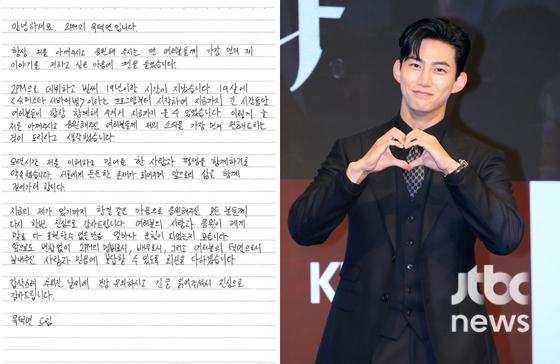 안녕하세요. 2PM의 옥택연입니다.
항상 저를 아껴주시고 응원해 주시는 팬 여러분들께 가장 먼저 제
이야기를 전하고 싶은 마음에 펜을 들었습니다.
2PM으로 데뷔하고 벌써 19년이란 시간이 지났습니다. 19살에
<슈퍼스타 서바이벌>이라는 프로그램부터 시작하여 지금까지 긴 시간동안
여러분들이 항상 함께해 주셔서 지금까지 올 수 있었습니다. 이렇게 늘
저를 아껴주시고 응원해주신 여러분들께 저의 소식을 가장 먼저 전해드리는
것이 도리라고 생각했습니다.
오랜시간 저를 이해하고 믿어준 한 사람과 평생을 함께하기로
약속했습니다. 서로에게 든든한 존재가 되어주며 앞으로의 삶을 함께
걸어가려 합니다.
지금의 제가 있기까지 한결 같은 마음으로 응원해주신 모든 분들께
다시 한번 진심으로 감사드립니다. 여러분의 사랑과 응원이 제게
말로 다 표현할 수 없을 만큼 얼마나 큰 힘이 되었는지 모릅니다.
앞으로도 변함없이 2PM의 멤버로서, 배우로서, 그리고 여러분의 택연으로서
보내주신 사랑과 믿음에 보답할 수 있도록 최선을 다하겠습니다.
갑작스레 추워진 날씨에 건강 유의하시고 긴 글 읽어주셔서 진심으로
감사드립니다.
옥택연 드림
K
jtbc
news